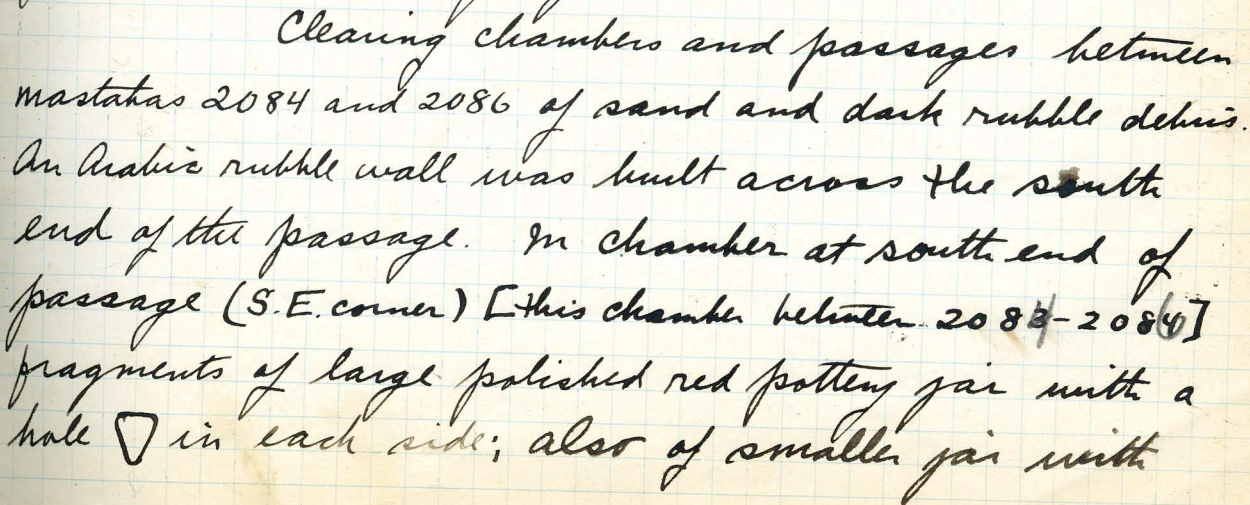 Clearing chambers and passages between
mastabas 2084 and 2086 of sand and dark rubble debris.
An Arabic rubble wall was built across the south
end of the passage. In chamber at south end of
passage (S.E. corner) [this chamber between 2084-2086]
fragments of large polished red pottery jar with a
hole ▽ in each side; also of smaller jar with